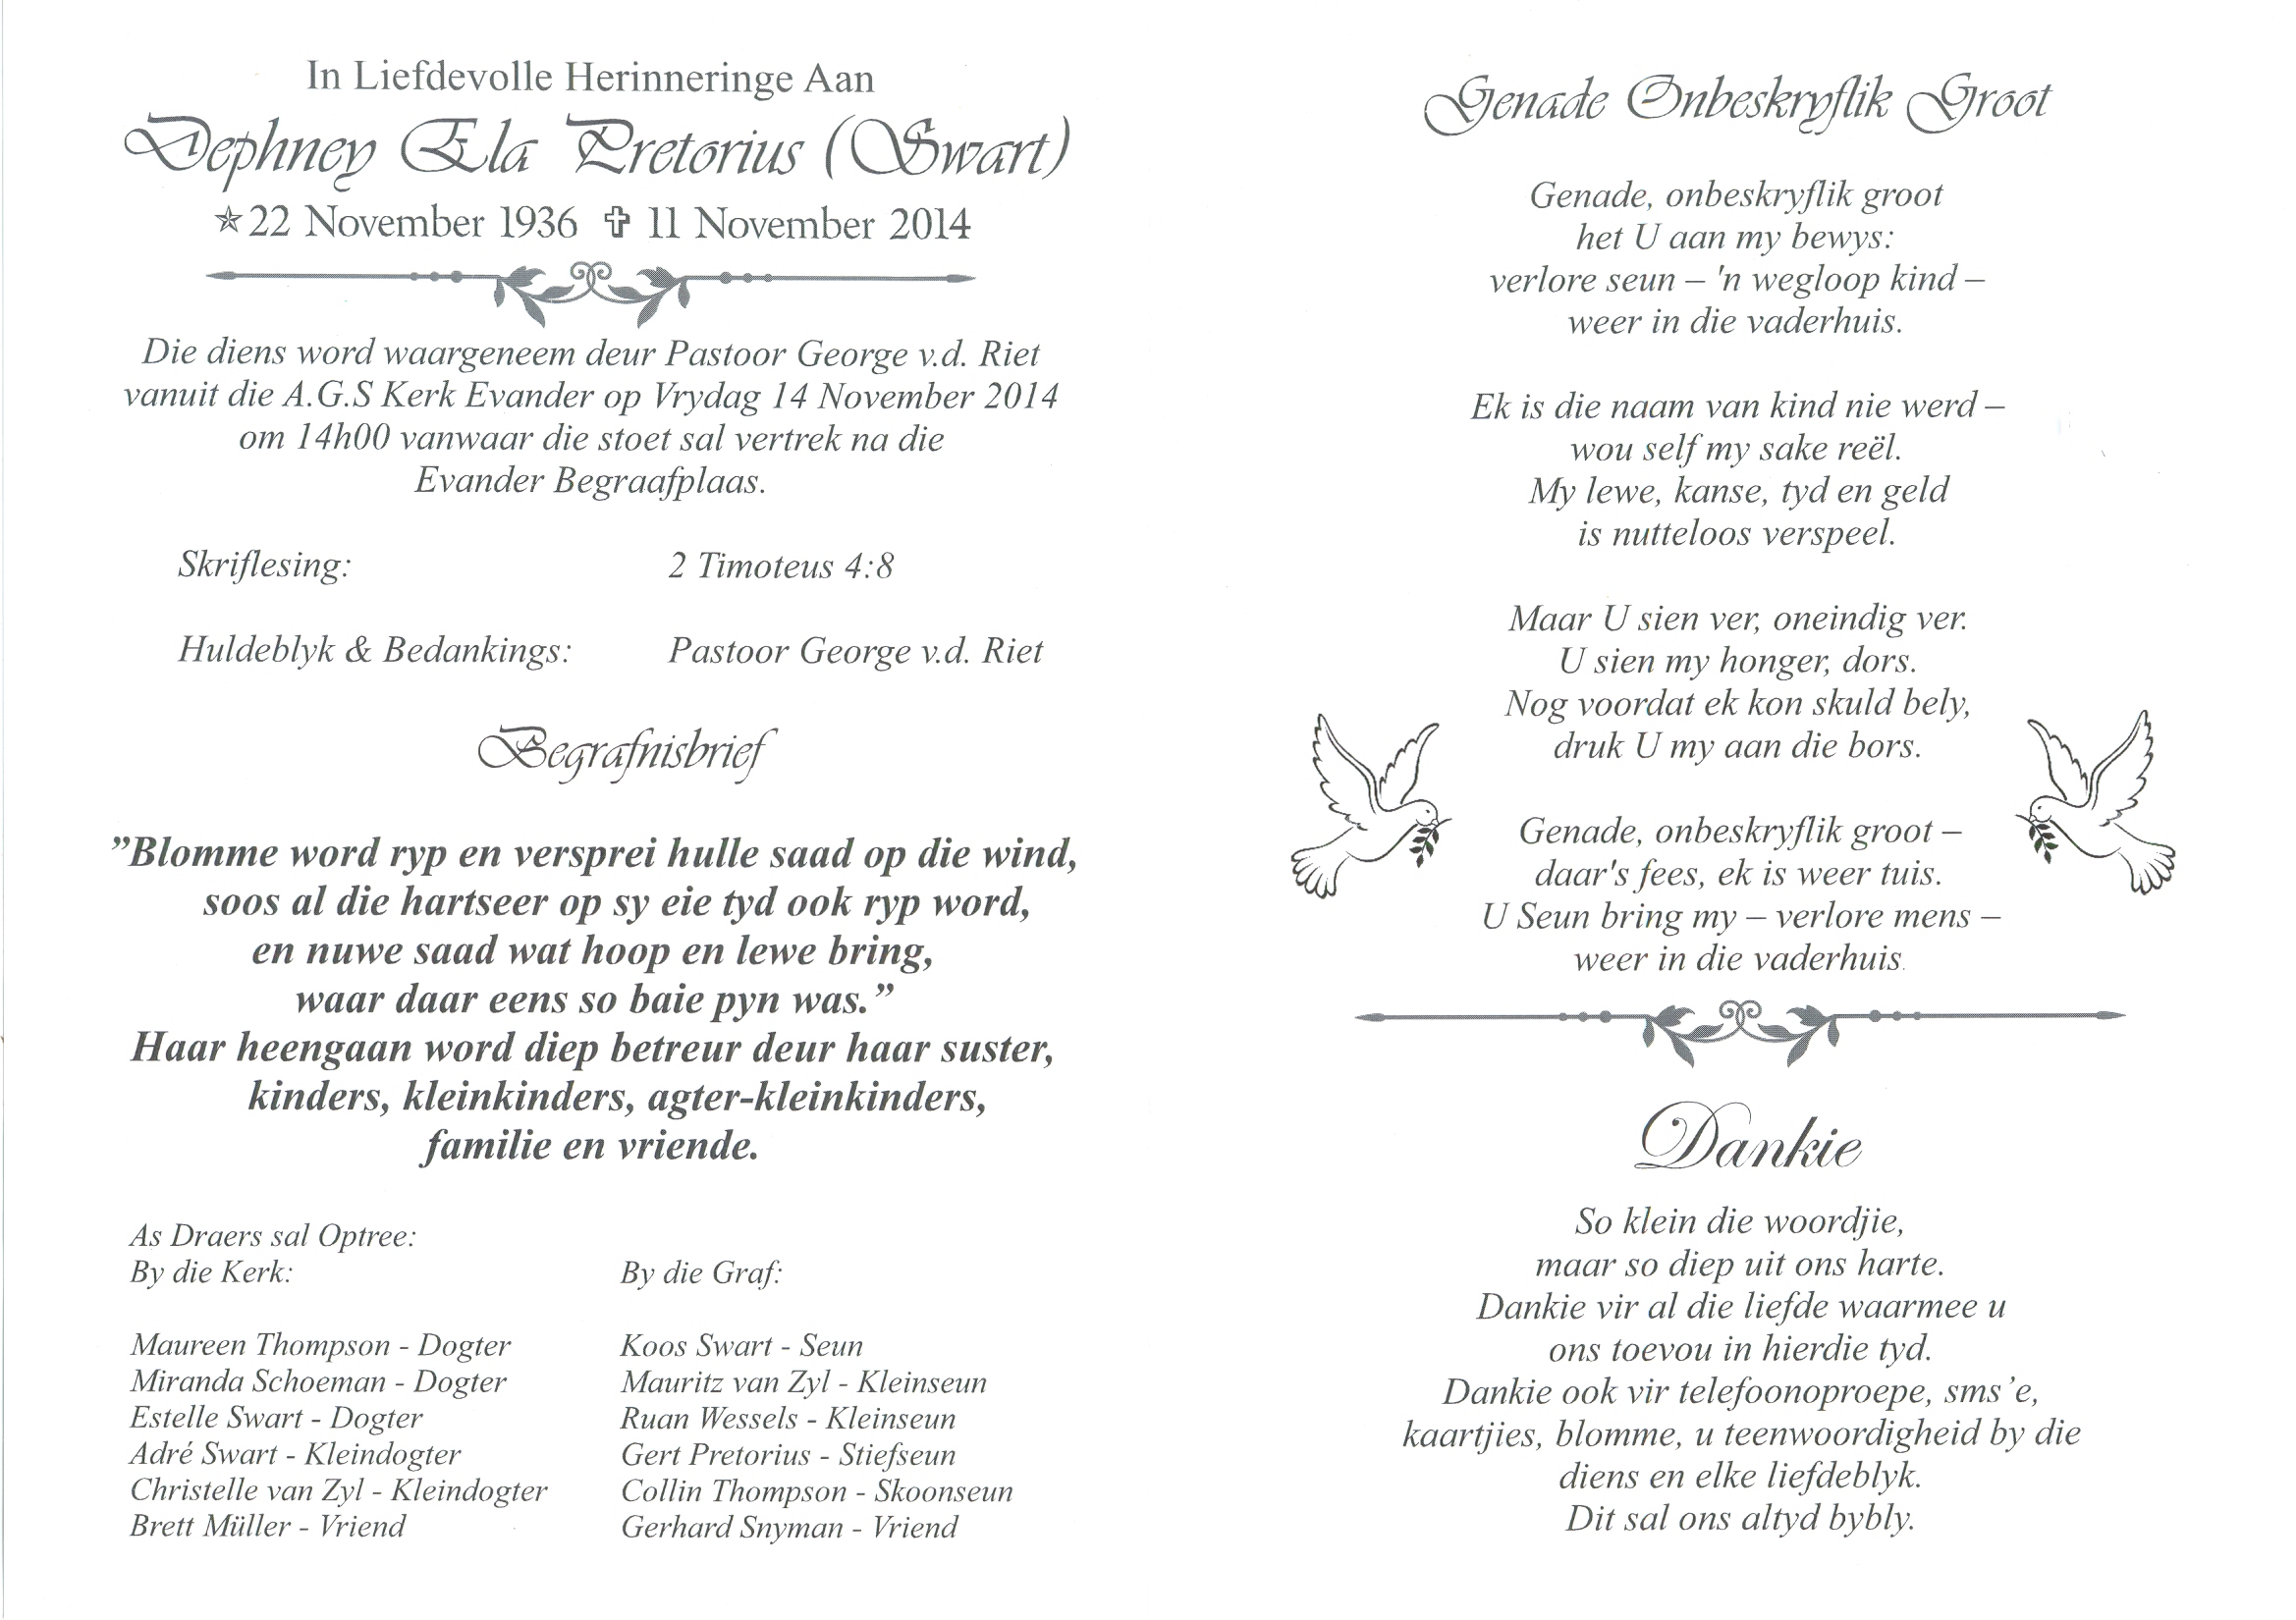 In Liefdevolle Herinneringe Aan
Dephney Ela Pretorius (Swart)
☆22 November 1936 ✞ 11 November 2014
Die diens word waargeneem deur Pastoor George v.d. Riet
vanuit die A.G.S Kerk Evander op Vrydag 14 November 2014
om 14h00 vanwaar die stoet sal vertrek na die
Evander Begraafplaas.
Skriflesing: 2 Timoteus 4:8
Huldeblyk & Bedankings: Pastoor George v.d. Riet
Begrafnisbrief
”Blomme word ryp en versprei hulle saad op die wind,
soos al die hartseer op sy eie tyd ook ryp word,
en nuwe saad wat hoop en lewe bring,
waar daar eens so baie pyn was.”
Haar heengaan word diep betreur deur haar suster,
kinders, kleinkinders, agter-kleinkinders,
familie en vriende.
As Draers sal Optree:
By die Kerk:
Maureen Thompson - Dogter
Miranda Schoeman - Dogter
Estelle Swart - Dogter
Adré Swart - Kleindogter
Christelle van Zyl - Kleindogter
Brett Müller - Vriend
By die Graf:
Koos Swart - Seun
Mauritz van Zyl - Kleinseun
Ruan Wessels - Kleinseun
Gert Pretorius - Stiefseun
Collin Thompson - Skoonseun
Gerhard Snyman - Vriend
Genade Onbeskryflik Groot
Genade, onbeskryflik groot
het U aan my bewys:
verlore seun – 'n wegloop kind –
weer in die vaderhuis.
Ek is die naam van kind nie werd –
wou self my sake reël.
My lewe, kanse, tyd en geld
is nutteloos verspeel.
Maar U sien ver, oneindig ver.
U sien my honger, dors.
Nog voordat ek kon skuld bely,
druk U my aan die bors.
Genade, onbeskryflik groot –
daar's fees, ek is weer tuis.
U Seun bring my – verlore mens –
weer in die vaderhuis.
Dankie
So klein die woordjie,
maar so diep uit ons harte.
Dankie vir al die liefde waarmee u
ons toevou in hierdie tyd.
Dankie ook vir telefoonoproepe, sms’e,
kaartjies, blomme, u teenwoordigheid by die
diens en elke liefdeblyk.
Dit sal ons altyd bybly.